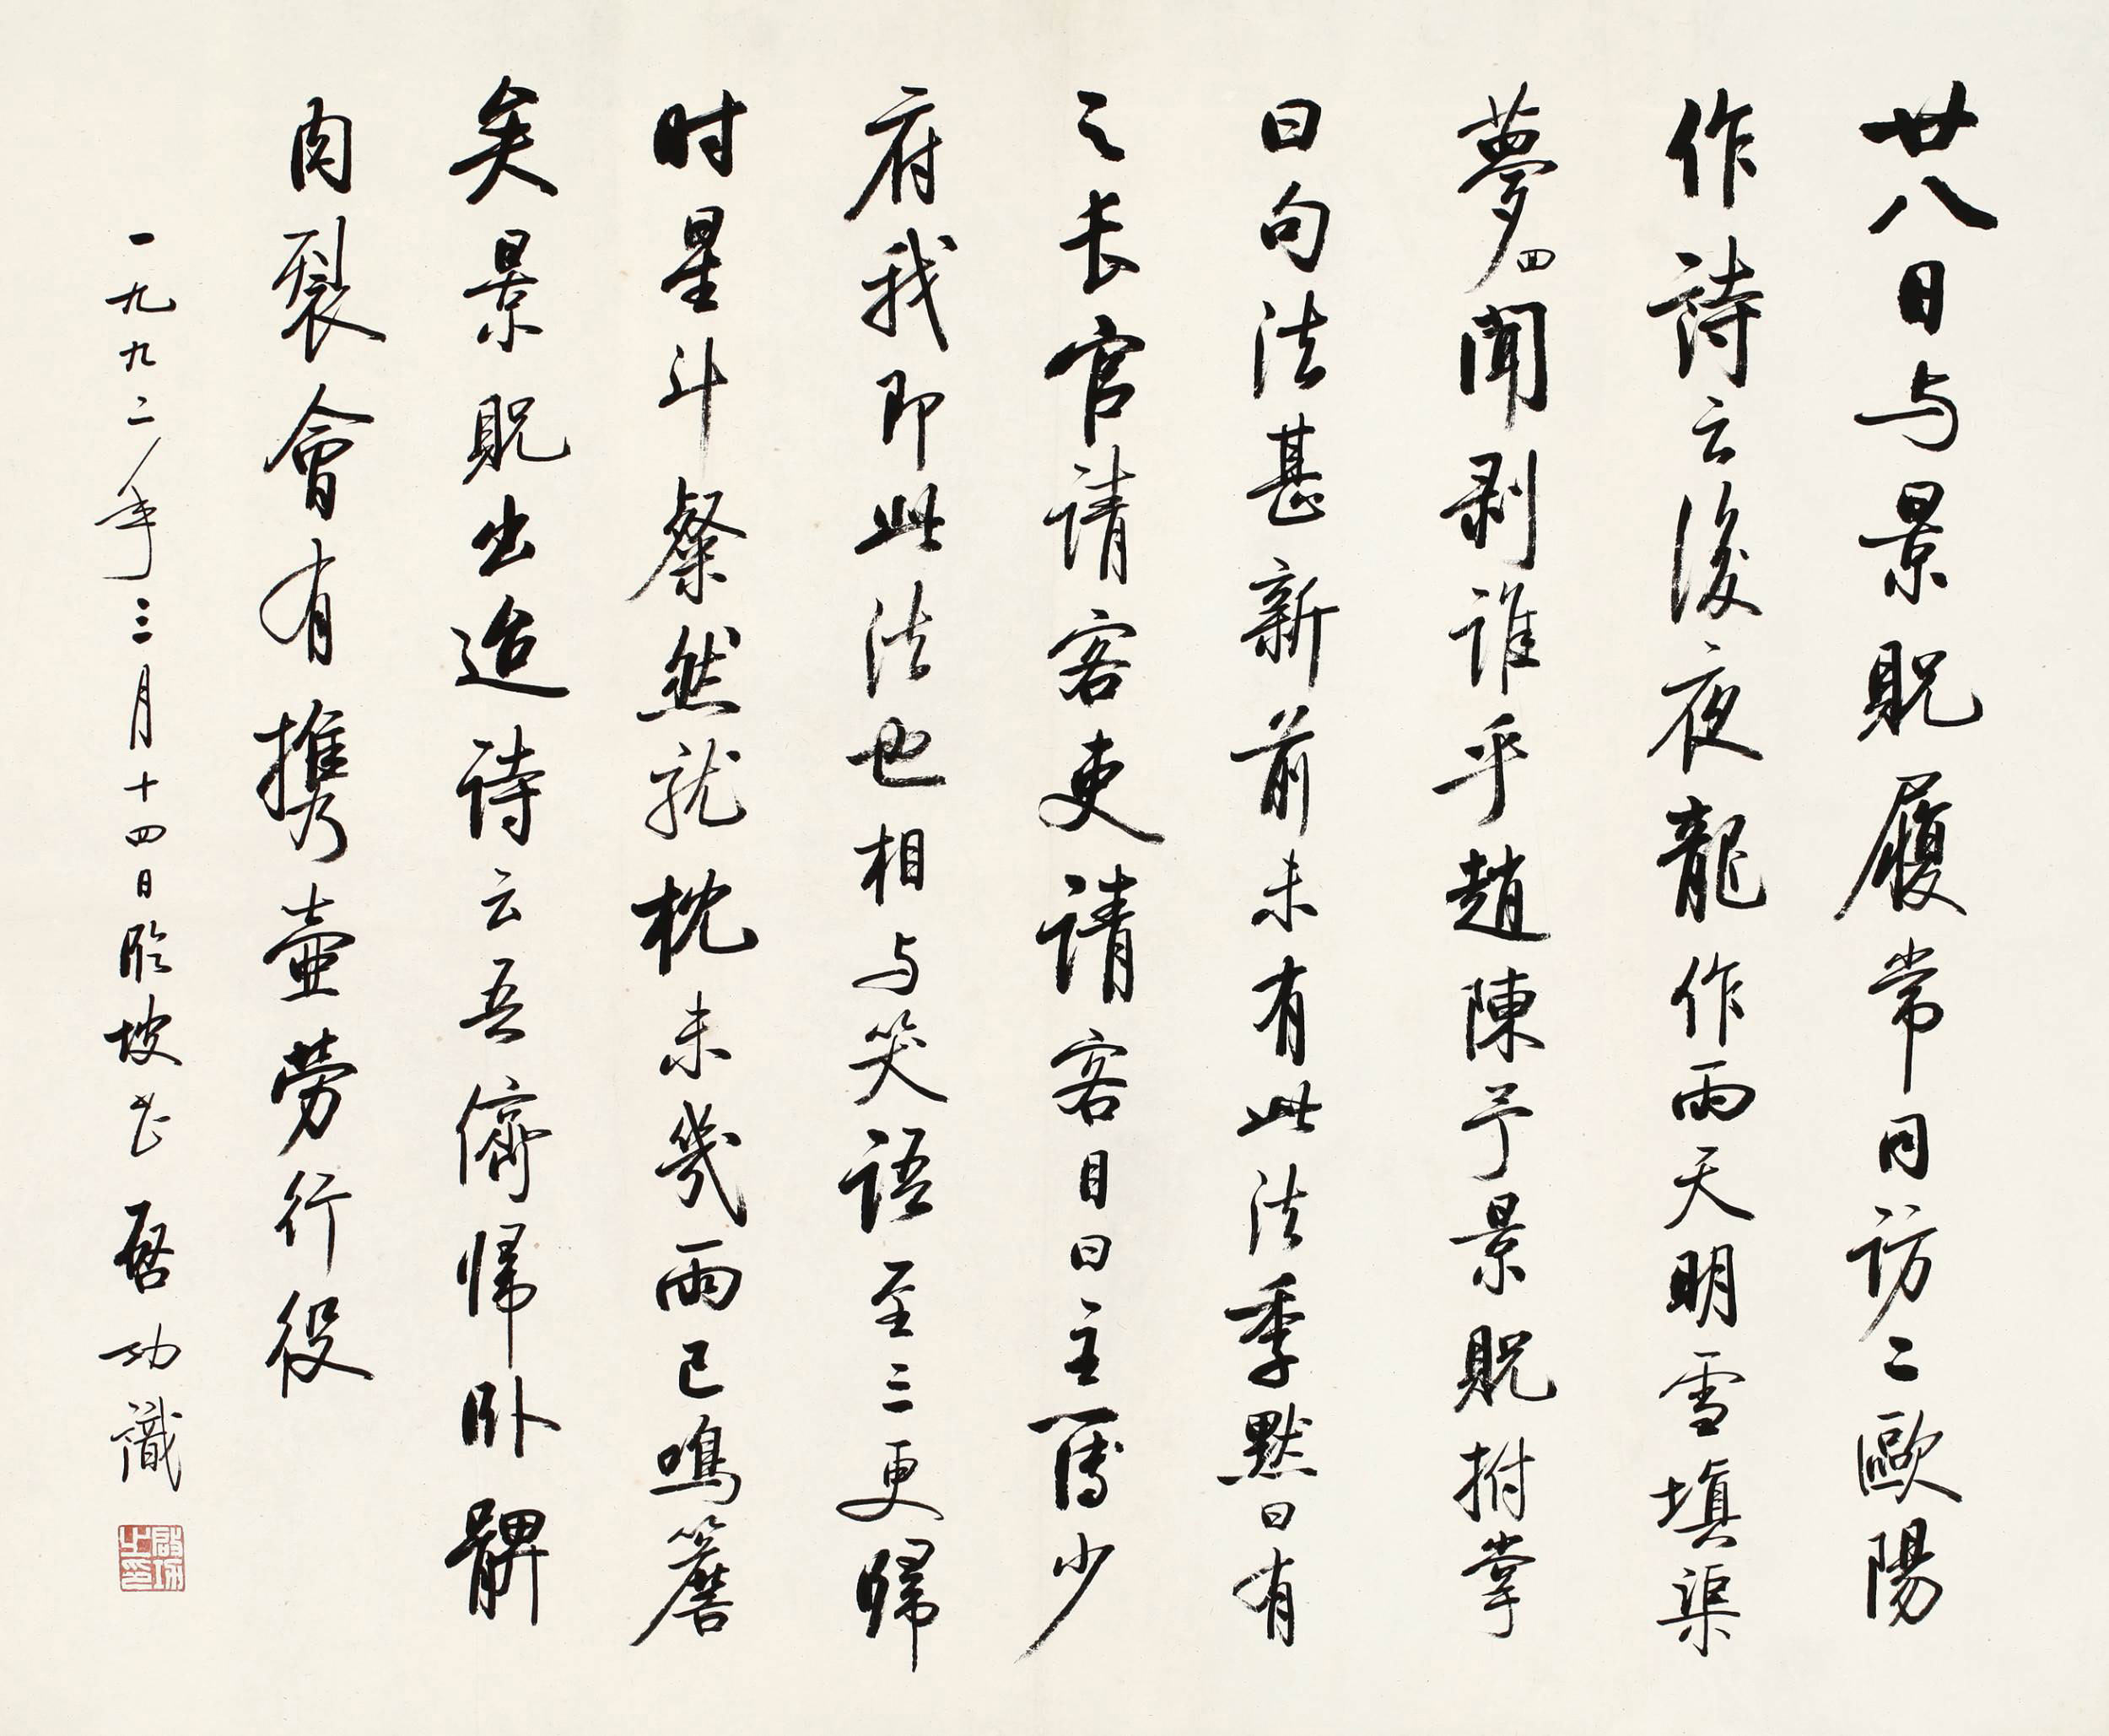 廿八日与景貺履常同访二歐陽
作詩云後夜龍作雨天明雪填渠
夢四聞剥谁乎趙陳予景貺拊掌
曰句法甚新前未有此法季默曰有
之长官请客吏请客目曰主簿少
府我即此法也相与笑语至三更歸
时星斗粲然就枕未幾雨已鳴簷
矣景貺出迨诗云吾儕帰卧髀
肉裂會有携壷劳行役
一九九二年三月十四日临坡书 啓功識
啟功之印